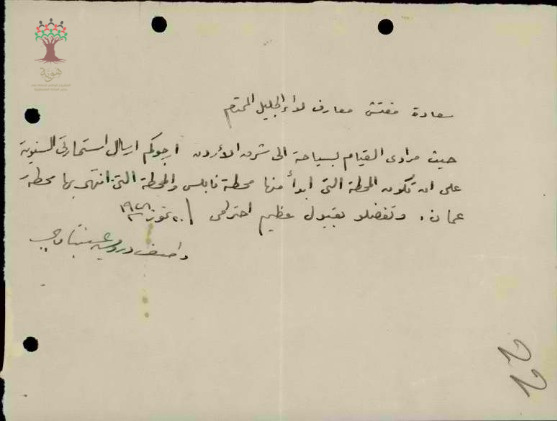 سعادة مفتش معارف لواء الجليل المحترم
حيث مرادي القيام بسياحة الى شرق الاردن ارجوكم ارسال استمارتي السنوية
على ان تكون المحطة التي ابدأ منها محطة نابلس والمحطة التي انتهي بها محطة
عمان. وتفضلو بقبول عظيم احترامي
واصف درويش
22